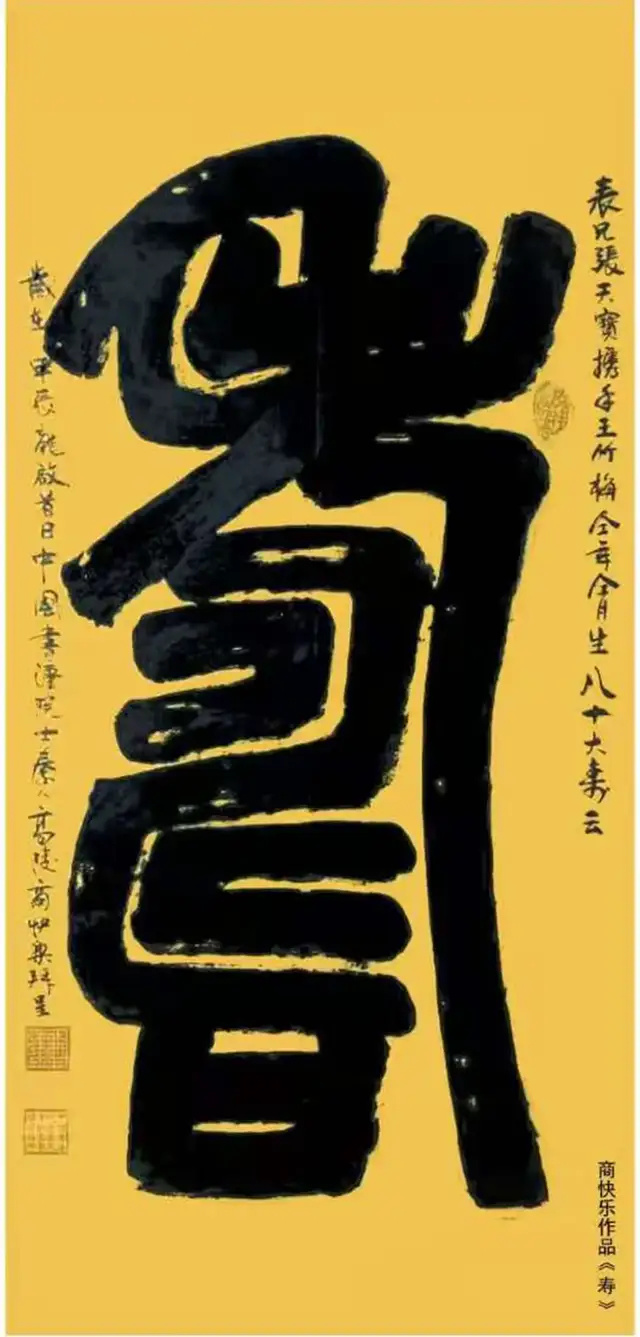 表兄張天寶攜手王竹梅仝年仝月生八十大寿云
壽
歲在甲辰龍啟昔日中國書院士秦人高陵商快樂拜呈
商快乐作品《寿》